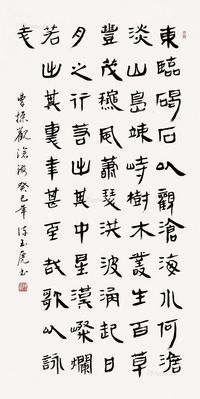 東臨碣石以觀滄海水何澹
淡山島竦峙樹木叢生百草
豐茂穐風蕭瑟洪波涌起日
月之行若出其中星漢燦爛
若出其裏幸甚至哉歌以詠
志
曹操觀滄海癸巳年玉虎书